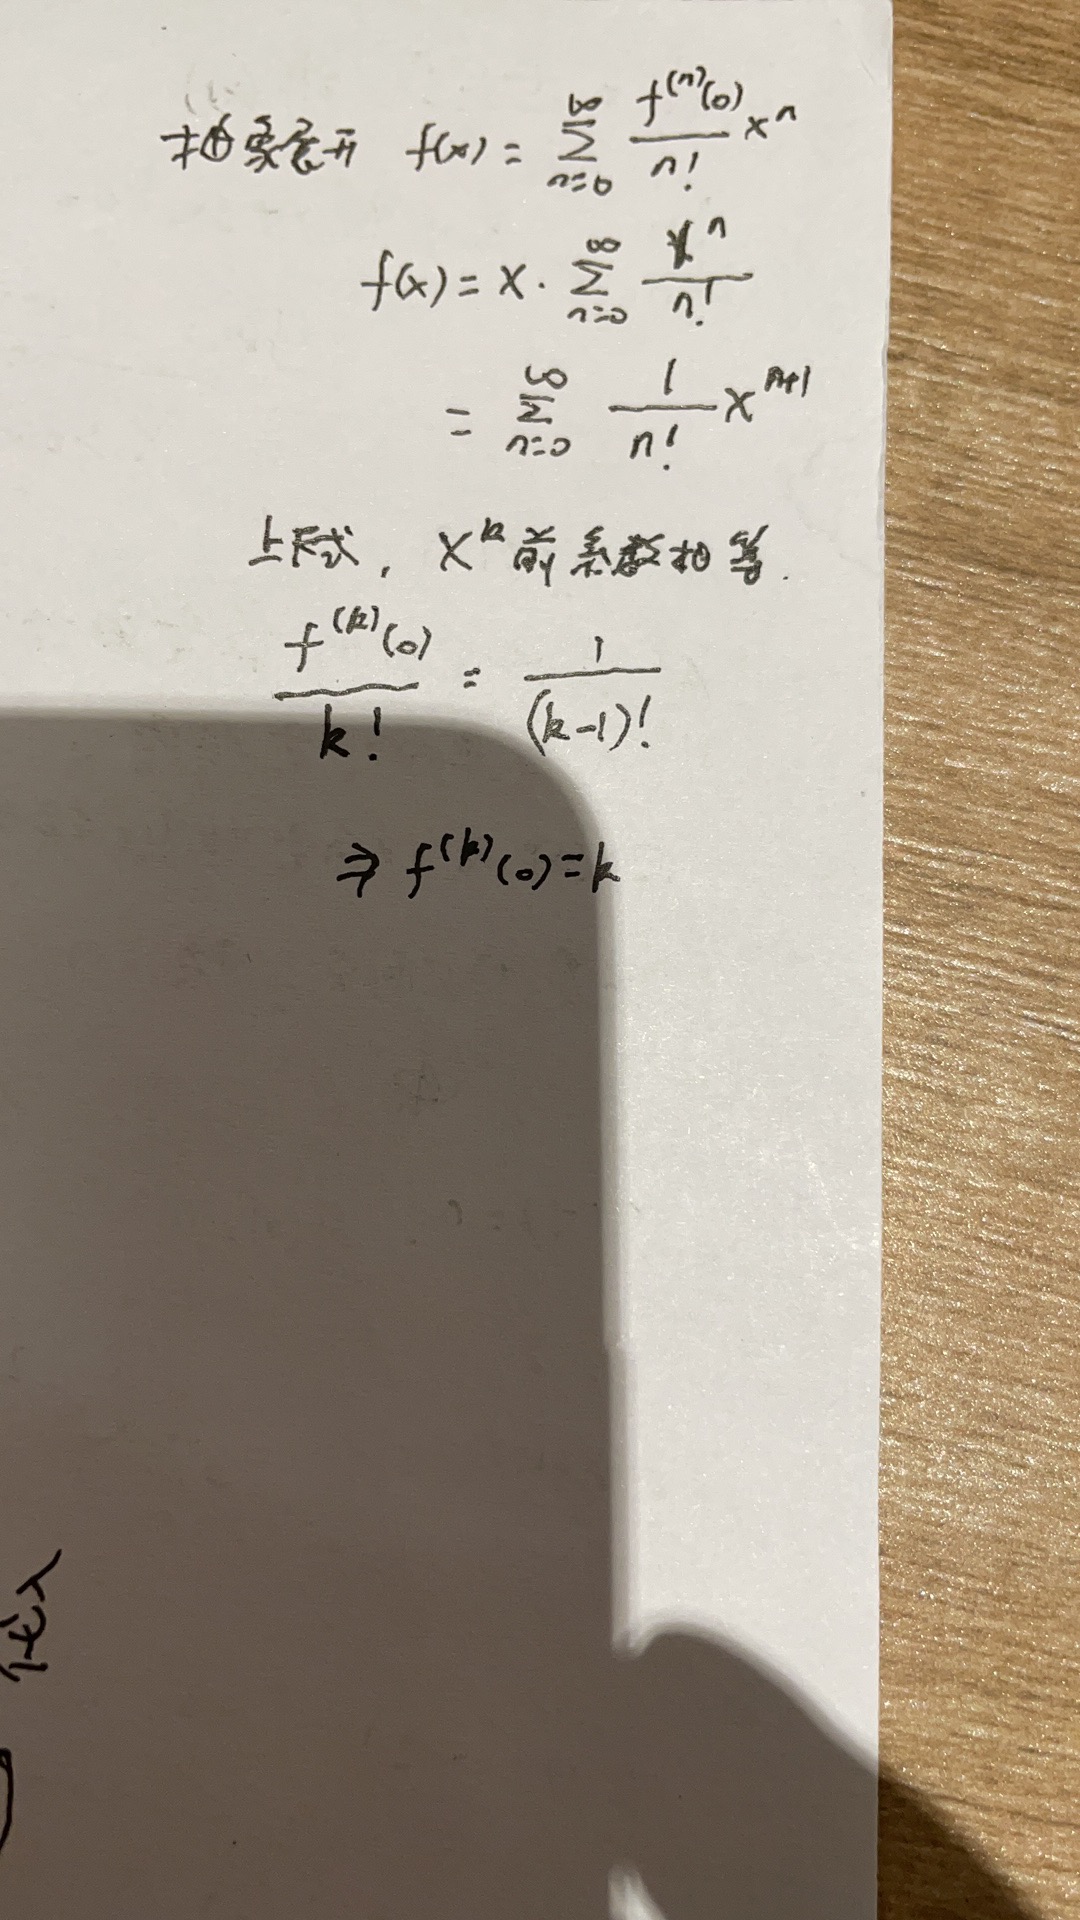 抽象展开 f(x) = ∑_{n=0}^{∞} \frac{f^{(n)}(0)}{n!} x^n
f(x) = x · ∑_{n=0}^{∞} \frac{x^n}{n!}
= ∑_{n=0}^{∞} \frac{1}{n!} x^{n+1}
上下式, x^k 前系数相等.
\frac{f^{(k)}(0)}{k!} = \frac{1}{(k-1)!}
⇒ f^{(k)}(0) = k
代入